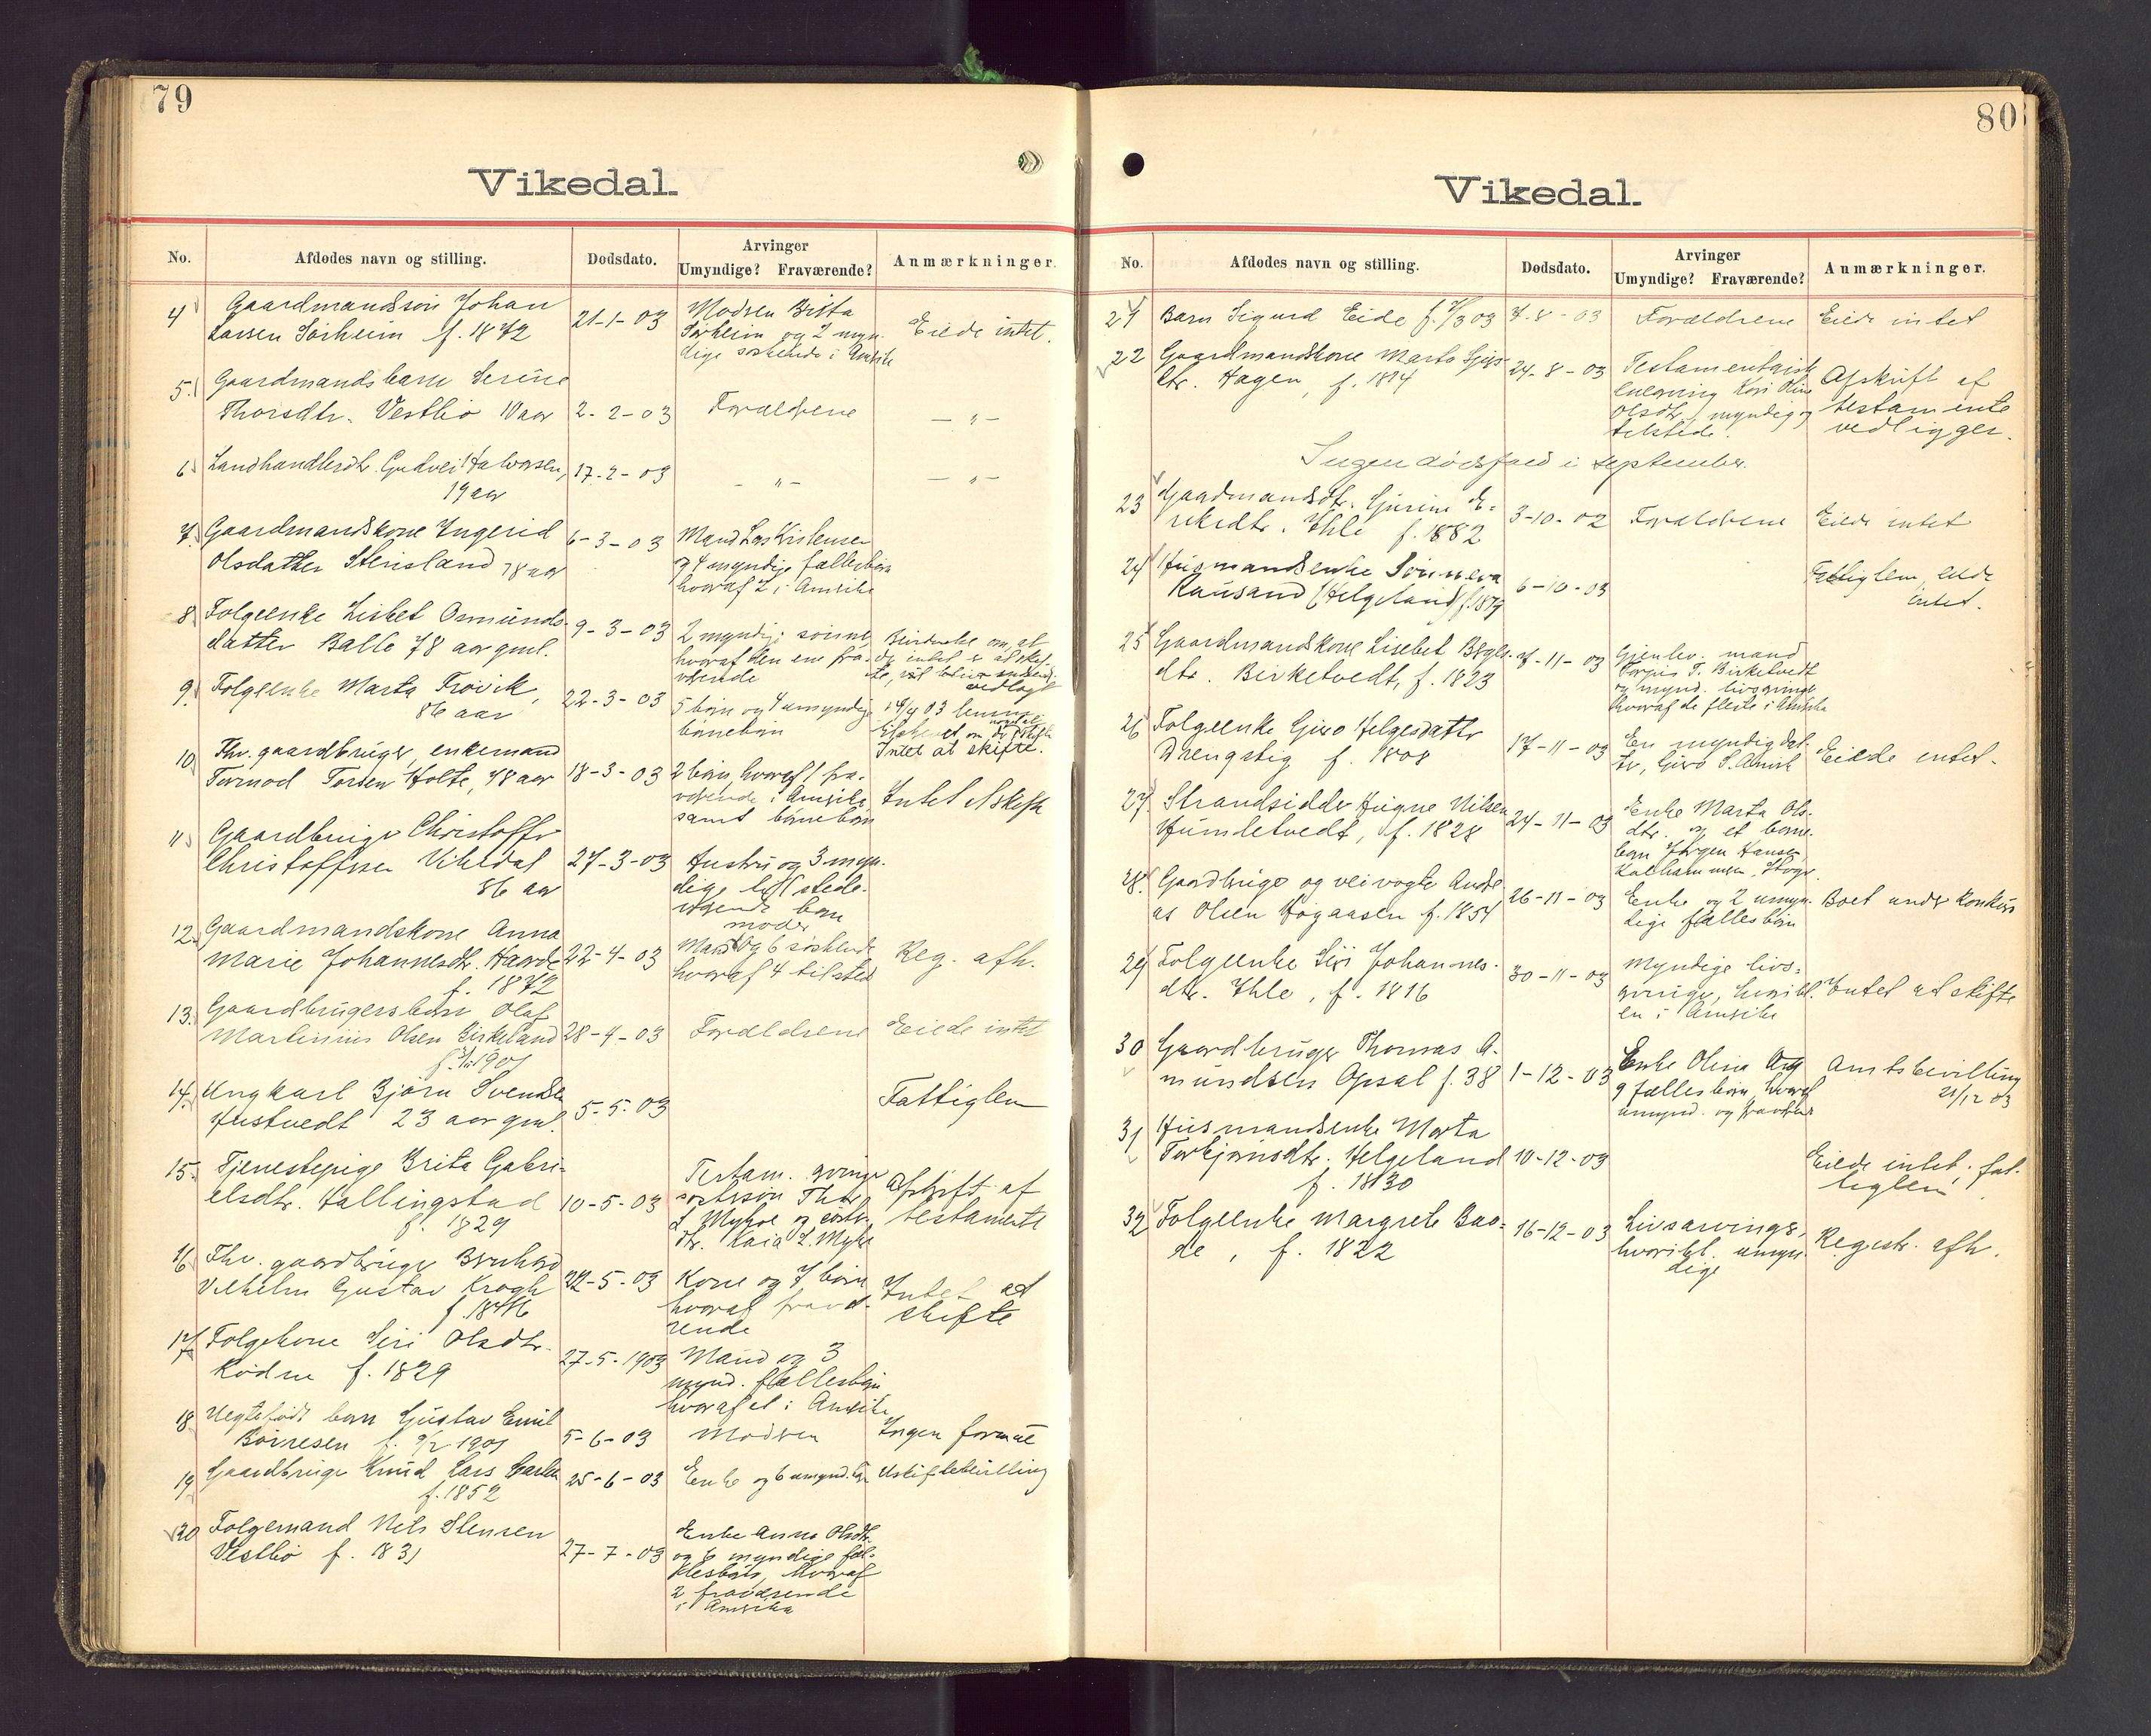 79
Vikedal.
No. Afdødes navn og stilling. Dødsdato. Arvinger Umyndige? Fraværende? Anmærkninger.
4 Gaardmandssøn Johan
Larsen Sørheim f. 1872 21-1-03 Modren Brita
Sørheim og 2 myn-
dige søskende i Amrika Eiede intet.
5. Gaardmandsbarn Serine
Thorsdtr. Vestbø 10 aar 2-2-03 Forældrene — „ —
6. Landhandlerdtr. Gudvei Halvorsen,
19 aar 17-2-03 — „ — — „ —
7. Gaardmandskone Ingerid
Olsdatter Stensland 78 aar 6-3-03 Mand Lars Kristensen
og 4 myndige fællesbørn
hvoraf 2 i Amrika
8. Folgeenke Lisbet Osmunds-
datter Balle 78 aar gml. 9-3-03 2 myndige sønner,
hvoraf den ene fra-
værende
9. Folgeenke Marta Frøvik,
86 aar 22-3-03 5 børn og 4 umyndige
børnebørn
Intet at skifte.
10. Fhv. gaardbruger, enkemand
Tormod Torsen Holte, 78 aar 18-3-03 2 børn, hvoraf 1 fra-
værende i Amrika
samt børnebørn Intet at skifte
11. Gaardbruger Christoffer
Christoffersen Vikedal
86 aar 27-3-03 Hustru og 3 myn-
dige, tilstede-
værende børn
12. Gaardmandskone Anna
Marie Johannesdtr. Haarde
f. 1872 22-4-03 Mand og 6 søskende
moder
hvoraf 4 tilsted Reg. afh.
13. Gaardbrugersbarn Olaf
Martinius Olsen Birkeland
1901 28-4-03 Forældrene Eiede intet
14. Ungkarl Bjørn Svendsen
Hustvedt 23 aar gml. 5-5-03 Fattiglem
15. Tjenestepige Brita Gabri-
elsdtr. Hallingstad
f. 1829 10-5-03 Testam. arvinger
søstersøn
L. Myhre og søster-
dtr. Kaia L. Myhre Afskrift af
testamente
16. Fhv. gaardbruger Bernhard
Vilhelm Gustav Krogh
f. 1846 22-5-03 Kone og 7 børn
hvoraf fravæ-
rende Intet at
skifte
17. Folgekone Siri Olsdtr.
Rødne f. 1829 27-5-1903 Mand og 3
mynd. fællesbørn
hvoraf et i Amrika
18. Uegtefødt barn Gustav Emil
Børresen f. 9/2 1901 5-6-03 Modren Ingen formue
19. Gaardbruger Knud Lars
f. 1852 25-6-03 Enke og 6 umynd. børn Uskiftebevilling
20 Folgemand Nels Stensen
Vestbø f. 1831 27-7-03 Enke Anna Olsdtr.
og 6 myndige fæl-
lesbørn, hvoraf
2 fraværende
i Amrika
80
Vikedal.
No. Afdødes navn og stilling. Dødsdato. Arvinger Umyndige? Fraværende? Anmærkninger.
21 Barn Sigurd Eide 7-8-03 Forældrene Eiede intet
22 Gaardmandskone Marta
dtr. Hagen, f. 1814 24-8-03 Testamentarisk
Kari Oline
Olsdtr, myndig og
tilstede. Afskrift af
testamente
vedligger.
Ingen dødsfald i september.
23 Gaardmandsdtr. Gurine E-
riksdtr. Ihle f. 1882 3-10-02 Forældrene Eiede intet
24 Husmandsenke Sønneva
Rausand (Helgeland) 6-10-03 Fattiglem, eiede
intet.
25 Gaardmandskone Lisebet
dtr. Birketvedt, f. 1823 7-11-03 Gjenlev. mand
T. Birketvedt
og mynd. livsarvinger
hvoraf de fleste i Amrika
26 Folgeenke Giro Helgesdatter
Drengstig f. 1808 17-11-03 En myndig dat-
ter, Giro Eiede intet.
27 Strandsidder Hagne Nilsen
Humletvedt, f. 1828 24-11-03 Enke Marta Ols-
dtr. og et barne-
barn Jørgen Hansen
28. Gaardbruger og veivogter Andre-
as Olsen Høgaasen f. 1854 26-11-03 Enke og 2 umyn-
dige fællesbørn Boet under konkurs
29 Folgeenke Siri Johannes-
dtr. Ihle, f. 1816 30-11-03 Myndige livs-
arvinger, hvoribl.
en i Amrika Intet at skifte
30 Gaardbruger Thomas A-
mundsen Opsal f. 38 1-12-03 Enke Olina og
9 fællesbørn, hvoraf
umynd. og fraværende Amtsbevilling
21/12 03
31 Husmandsenke Marta
Torbjørnsdtr. Helgeland
f. 1830 10-12-03 Eiede intet; fat-
tiglem
32 Folgeenke Margrete Baa-
de, f. 1822 16-12-03 Livsarvinger,
hvoribl. umyn-
dige Registr. afh.